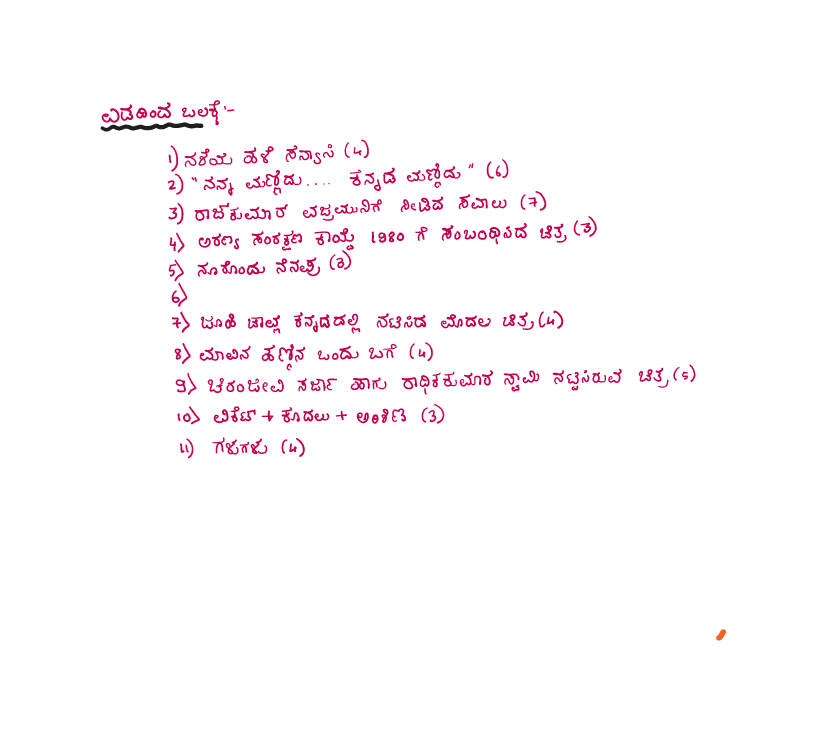 ಎಡದಿಂದ ಬಲಕ್ಕೆ :-
1) ನಶೆಯ ಹಳೆ ಸನ್ಯಾಸಿ (4)
2) "ನನ್ನ ಮಣ್ಣಿದು.... ಕನ್ನಡ ಮಣ್ಣಿದು" (6)
3) ರಾಜ್‌ಕುಮಾರ ವಜ್ರಮುನಿಗೆ ನೀಡಿದ ಸವಾಲು (7)
4) ಅರಣ್ಯ ಸಂರಕ್ಷಣ ಕಾಯ್ದೆ 1980 ಗೆ ಸಂಬಂಧಿಸಿದ ಚಿತ್ರ (3)
5) ನೂರೊಂದು ನೆನಪು (3)
6)
7) ಜೂಹಿ ಚಾವ್ಲ ಕನ್ನಡದಲ್ಲಿ ನಟಿಸಿದ ಮೊದಲ ಚಿತ್ರ (4)
8) ಮಾವಿನ ಹಣ್ಣಿನ ಒಂದು ಬಗೆ (4)
9) ಚಿರಂಜೀವಿ ಸರ್ಜಾ ಹಾಗು ರಾಧಿಕಕುಮಾರ ಸ್ವಾಮಿ ನಟ್ಟಿಸಿರುವ ಚಿತ್ರ (5)
10) ವಿಕೆಟ್ + ಕೂದಲು + ಅರಿಶಿಣ (3)
11) ಗಳುಗಳು (4)